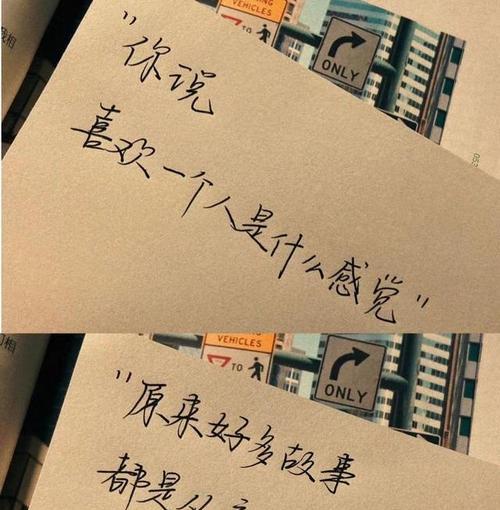 VEHICLES
TO
ONLY
"你说
喜欢一个人是什么感觉"
VEHICLES
TO
ONLY
"原来好多故事
都是